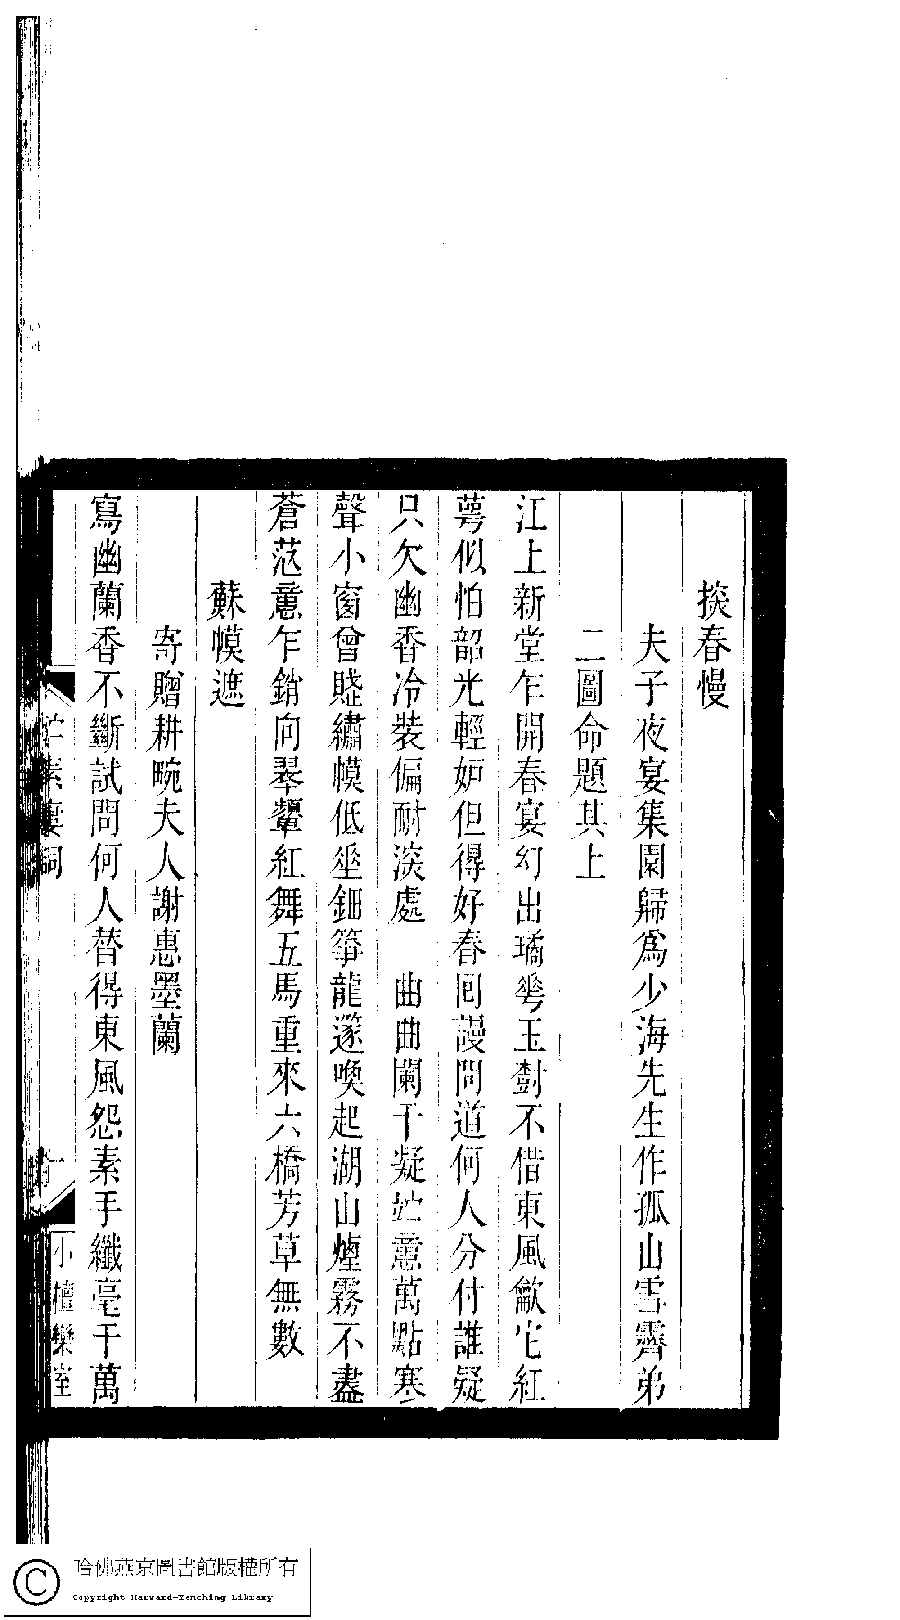 掞春慢
夫子夜宴集園歸爲少海先生作孤山雪霽弟
二圖命題其上
江上新堂乍開春宴幻出璚芲玉𡬾不借東風歛它紅
萼似怕韶光輕妒但得好春囘謾問道何人分付誰疑
只欠幽香冷裝偏耐淡處　曲曲闌干凝竚意萬點寒
聲小窗曾賤繡幙低垂鈿箏龍篴喚起湖山煙霧不盡
蒼茫意乍銷向翠顰紅舞五馬重來六橋芳草無數
蘇幙遮
寄贈耕畹夫人謝惠墨蘭
寫幽蘭香不斷試問何人替得東風怨素手纖毫千萬
素 詞
小檀欒室
哈佛燕京圖書館版權所有
Copyright Harvard-Yenching Library